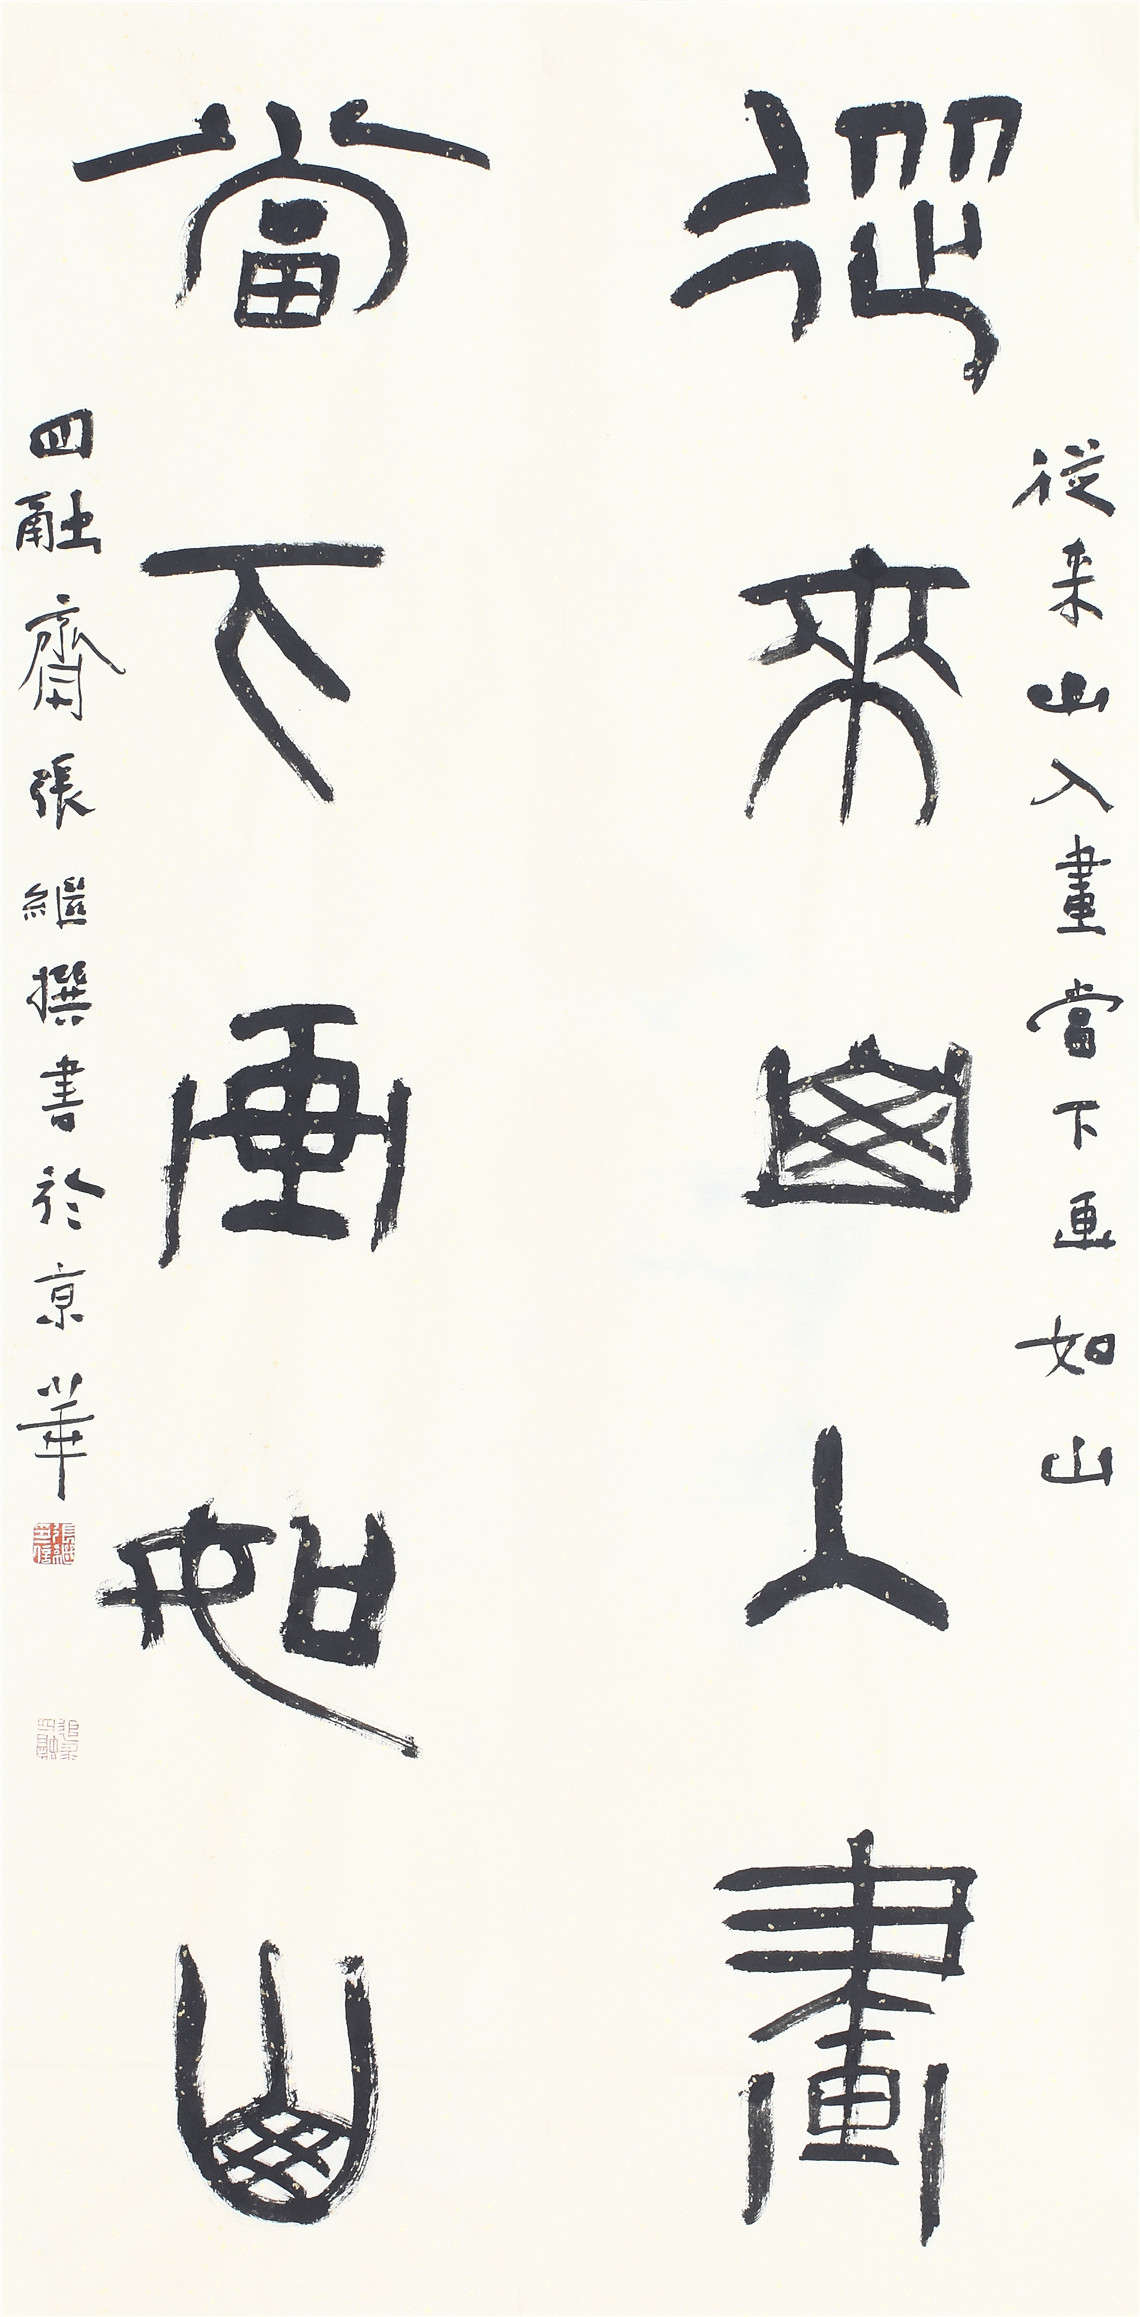 從來山入畫
當下画如山
從来山入畫當下画如山
四融齋張繼撰書於京華
張繼